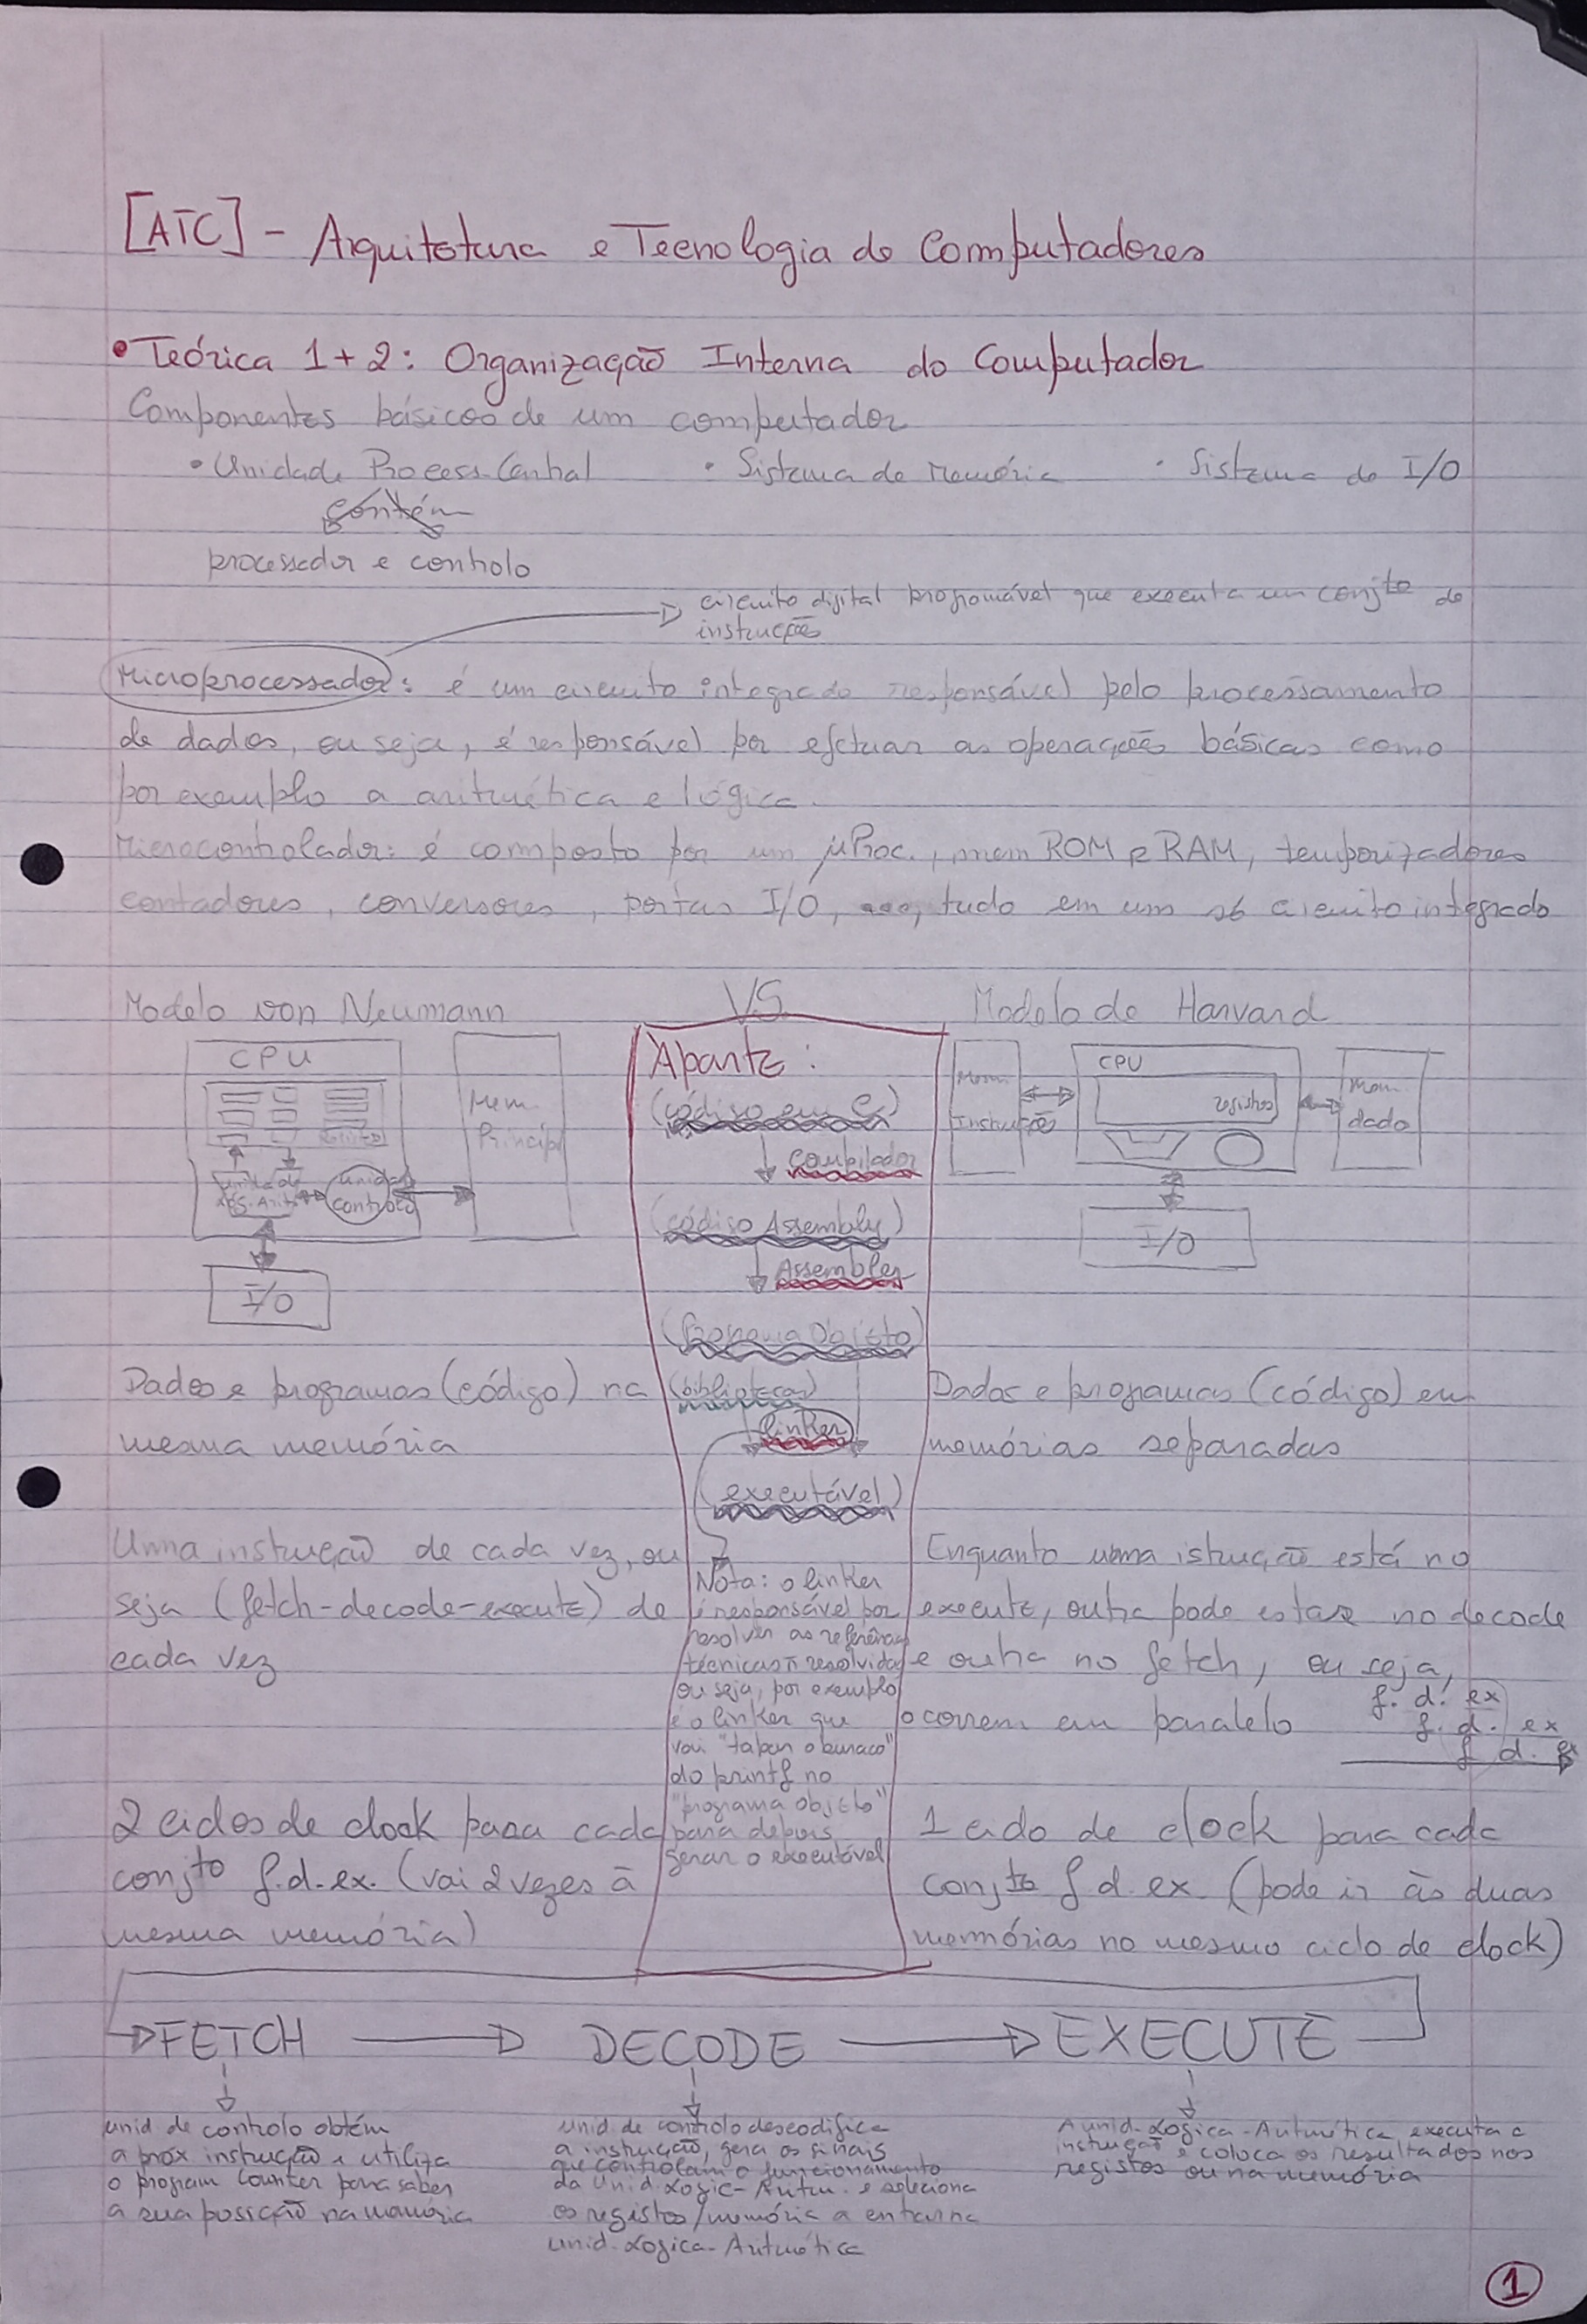 [ATC] - Arquitetura e Tecnologia de Computadores
• Teórica 1+2: Organização Interna do Computador
Componentes básicos de um computador
• Unidade Process. Central • Sistema de Memória • Sistema de I/O
contém
processador e controlo
circuito digital programável que executa um conjto de
instruções
Microprocessador: é um circuito integrado responsável pelo processamento
de dados, ou seja, é responsável por efetuar as operações básicas como
por exemplo a aritmética e lógica.
Microcontrolador: é composto por um µProc., mem ROM e RAM, temporizadores
contadores, conversores, portas I/O, tudo em um só circuito integrado
Modelo von Neumann VS. Modelo de Harvard
CPU
Mem.
Princip
Unidade
Arit
Unidade
controlo
I/O
Aparte:
(código em C)
Compilador
(código Assembly)
Assembler
(Programa Objeto)
(bibliotecas)
linker
(executável)
Nota: o linker
é responsável por
resolver as referências
técnicas ñ resolvidas
ou seja, por exemplo
é o linker que
vai "tapar o buraco"
do printf no
"programa objeto"
para depois
gerar o executável
Mem.
Instrução
CPU
registos
Mem.
dado
I/O
Dados e programas (código) na
mesma memória
Uma instrução de cada vez, ou
seja (fetch-decode-execute) de
cada vez
2 ciclos de clock para cada
conjto f.d.ex. (vai 2 vezes à
mesma memória)
Dados e programas (código) em
memórias separadas
Enquanto uma istrução está no
execute, outra pode estar no decode
e outra no fetch, ou seja,
ocorrem em paralelo
f. d. ex
f. d. ex
f d. ex
1 ciclo de clock para cada
conjto f d. ex. (pode ir às duas
memórias no mesmo ciclo de clock)
FETCH DECODE EXECUTE
unid de controlo obtém
a próx instrução e utiliza
o program counter para saber
a sua posição na memória
unid de controlo descodifica
a instrução, gera os sinais
que controlam o funcionamento
da Unid. Logic-Aritm. e seleciona
os registos/memória a entar na
unid. Logica-Aritmética
A unid. Logica-Aritmética executa a
instrução e coloca os resultados nos
registos ou na memória
1